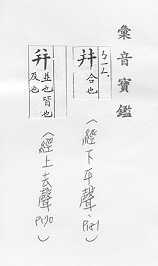 彙音寶鑑
幷 合也
(經下平聲，P151)
并 並也皆也
及也
(經上去聲 P170)